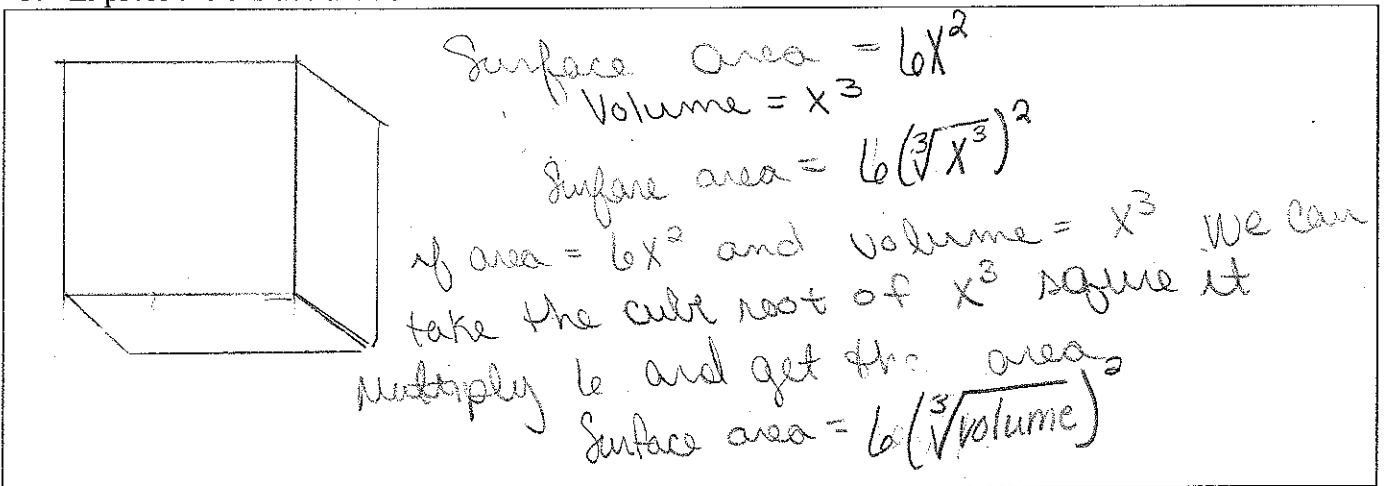 Surface area = 6x²
Volume = x³
Surface area = 6(∛x³)²
if area = 6x² and volume = x³ we can
take the cube root of x³ squre it
Multiply 6 and get the area
Surface area = 6(∛volume)²